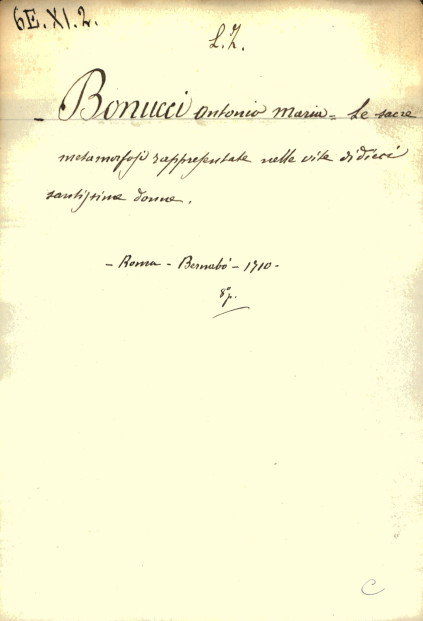 6E.XI.2.
L.Z.
- Bonucci Antonio Maria = Le sacre
metamorfosi rappresentate nelle vite di dieci
santissime donne.
- Roma - Bernabò - 1710 -
8° p.
C